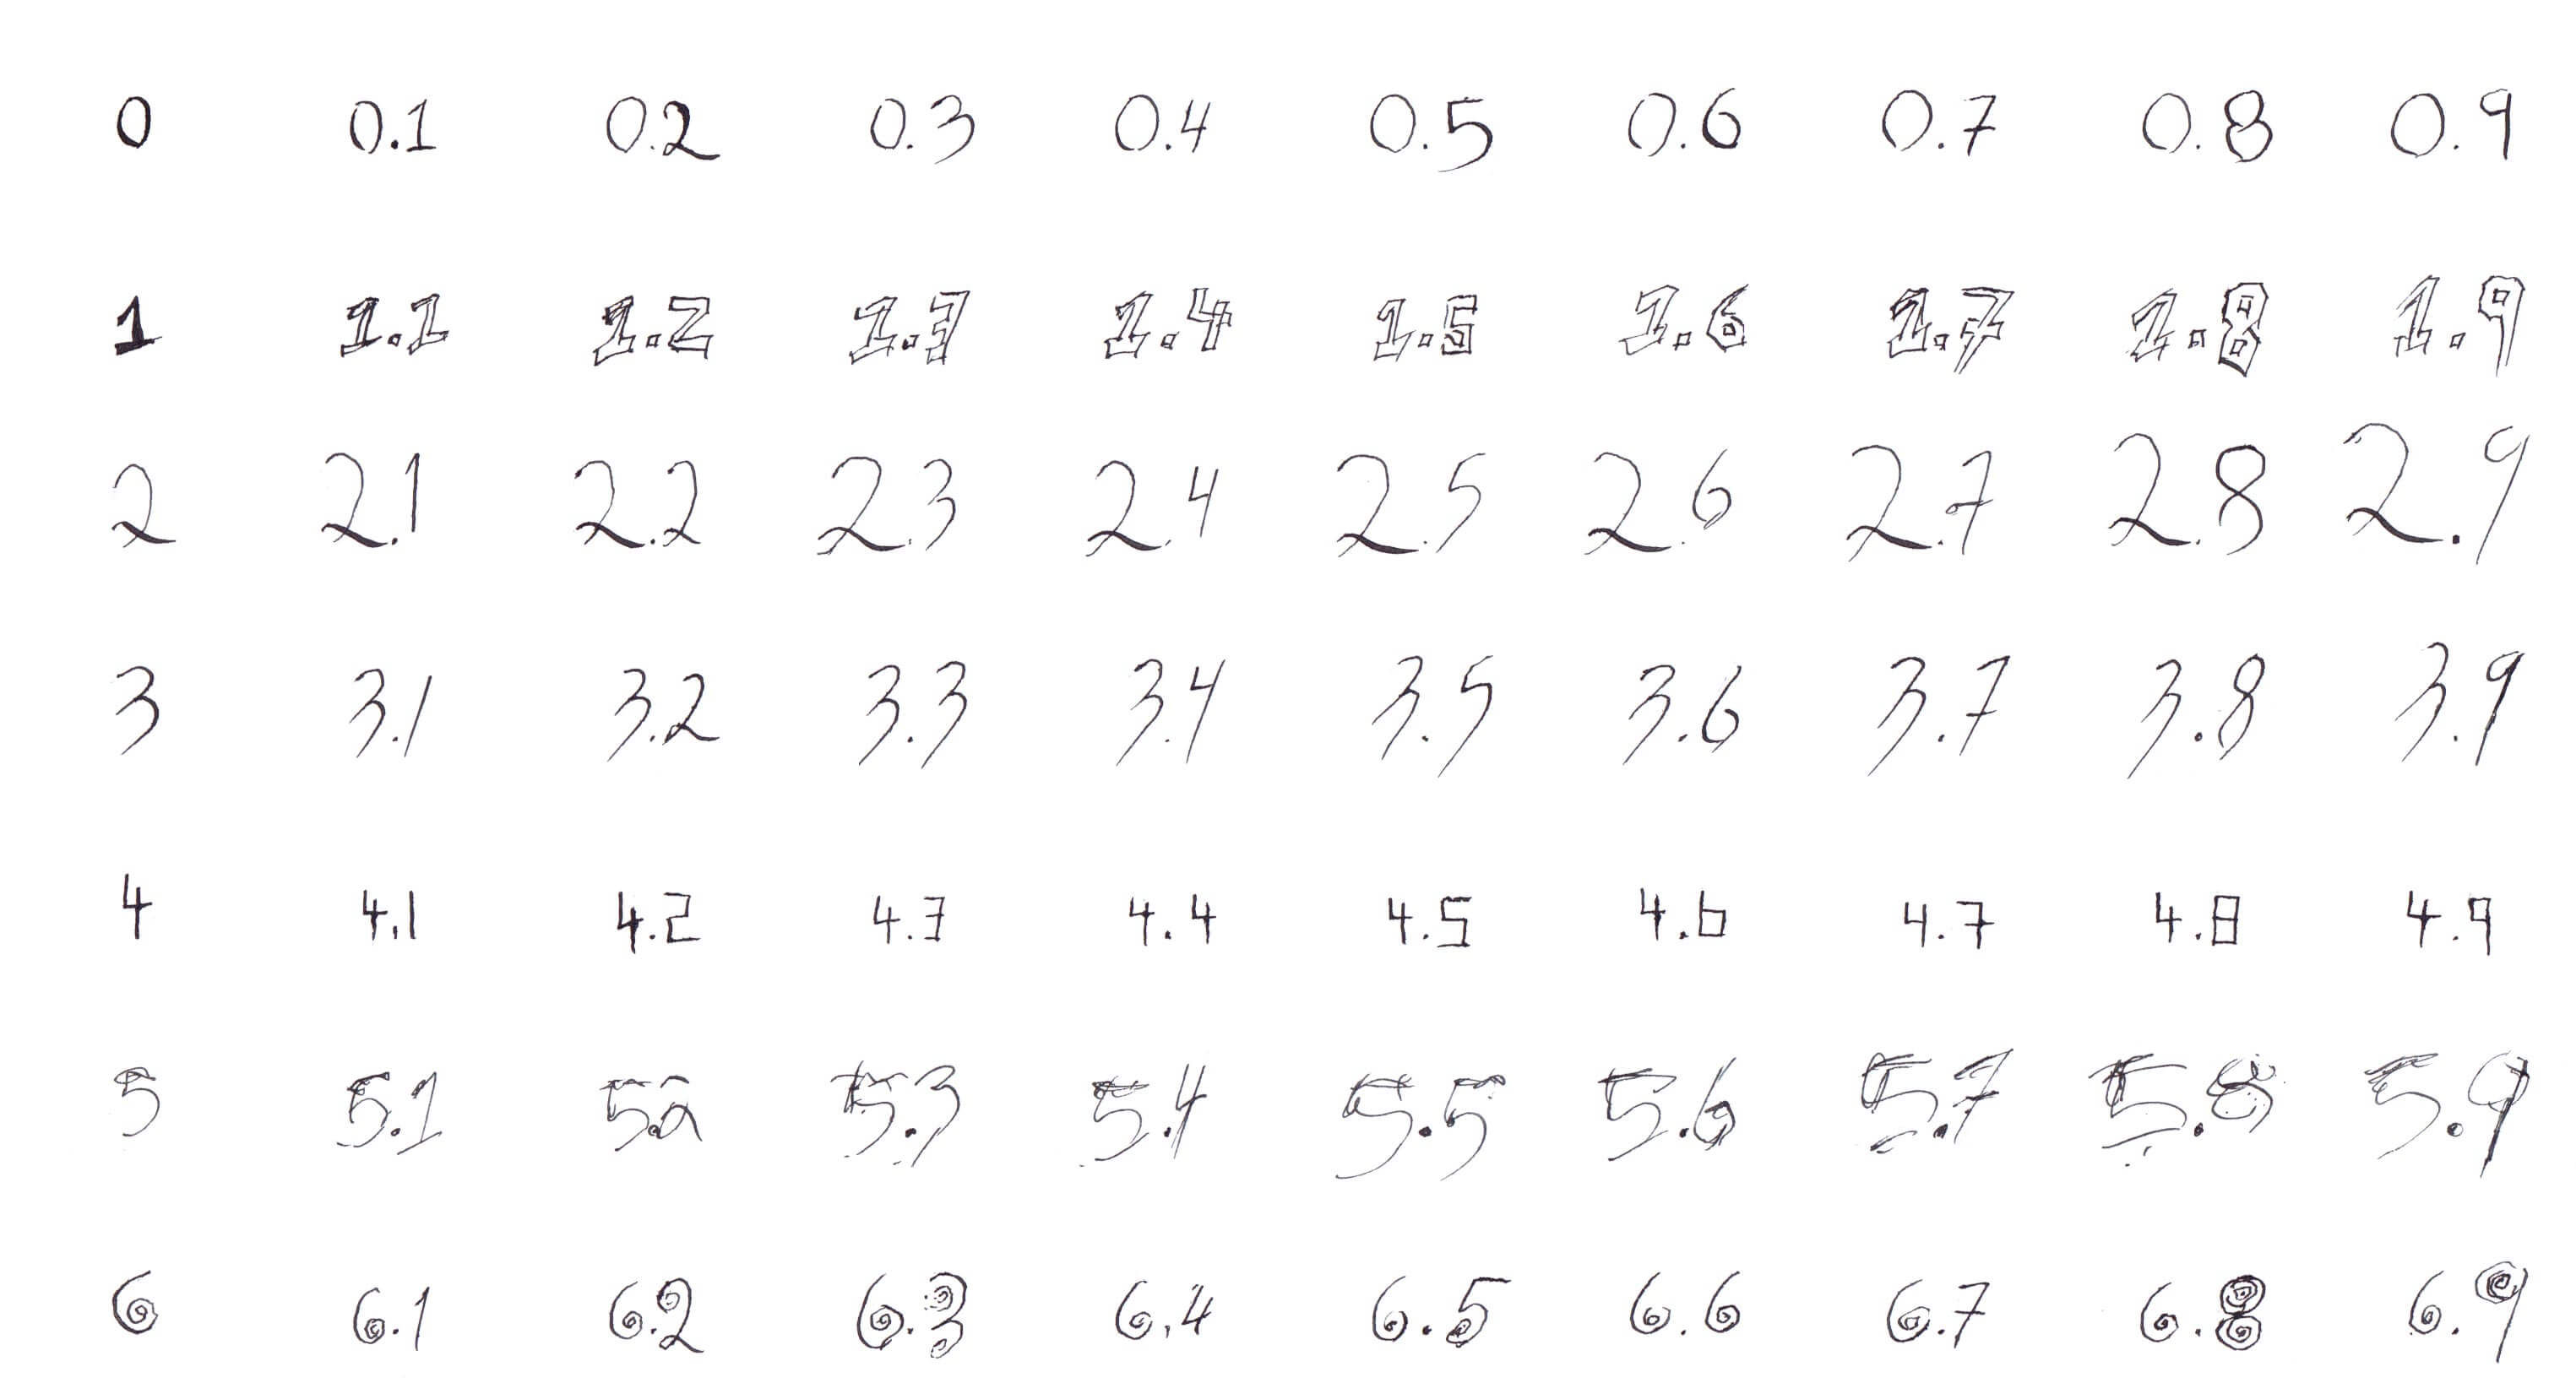 0 0.1 0.2 0.3 0.4 0.5 0.6 0.7 0.8 0.9
1 1.1 1.2 1.3 1.4 1.5 1.6 1.7 1.8 1.9
2 2.1 2.2 2.3 2.4 2.5 2.6 2.7 2.8 2.9
3 3.1 3.2 3.3 3.4 3.5 3.6 3.7 3.8 3.9
4 4.1 4.2 4.3 4.4 4.5 4.6 4.7 4.8 4.9
5 5.1 5.2 5.3 5.4 5.5 5.6 5.7 5.8 5.9
6 6.1 6.2 6.3 6.4 6.5 6.6 6.7 6.8 6.9